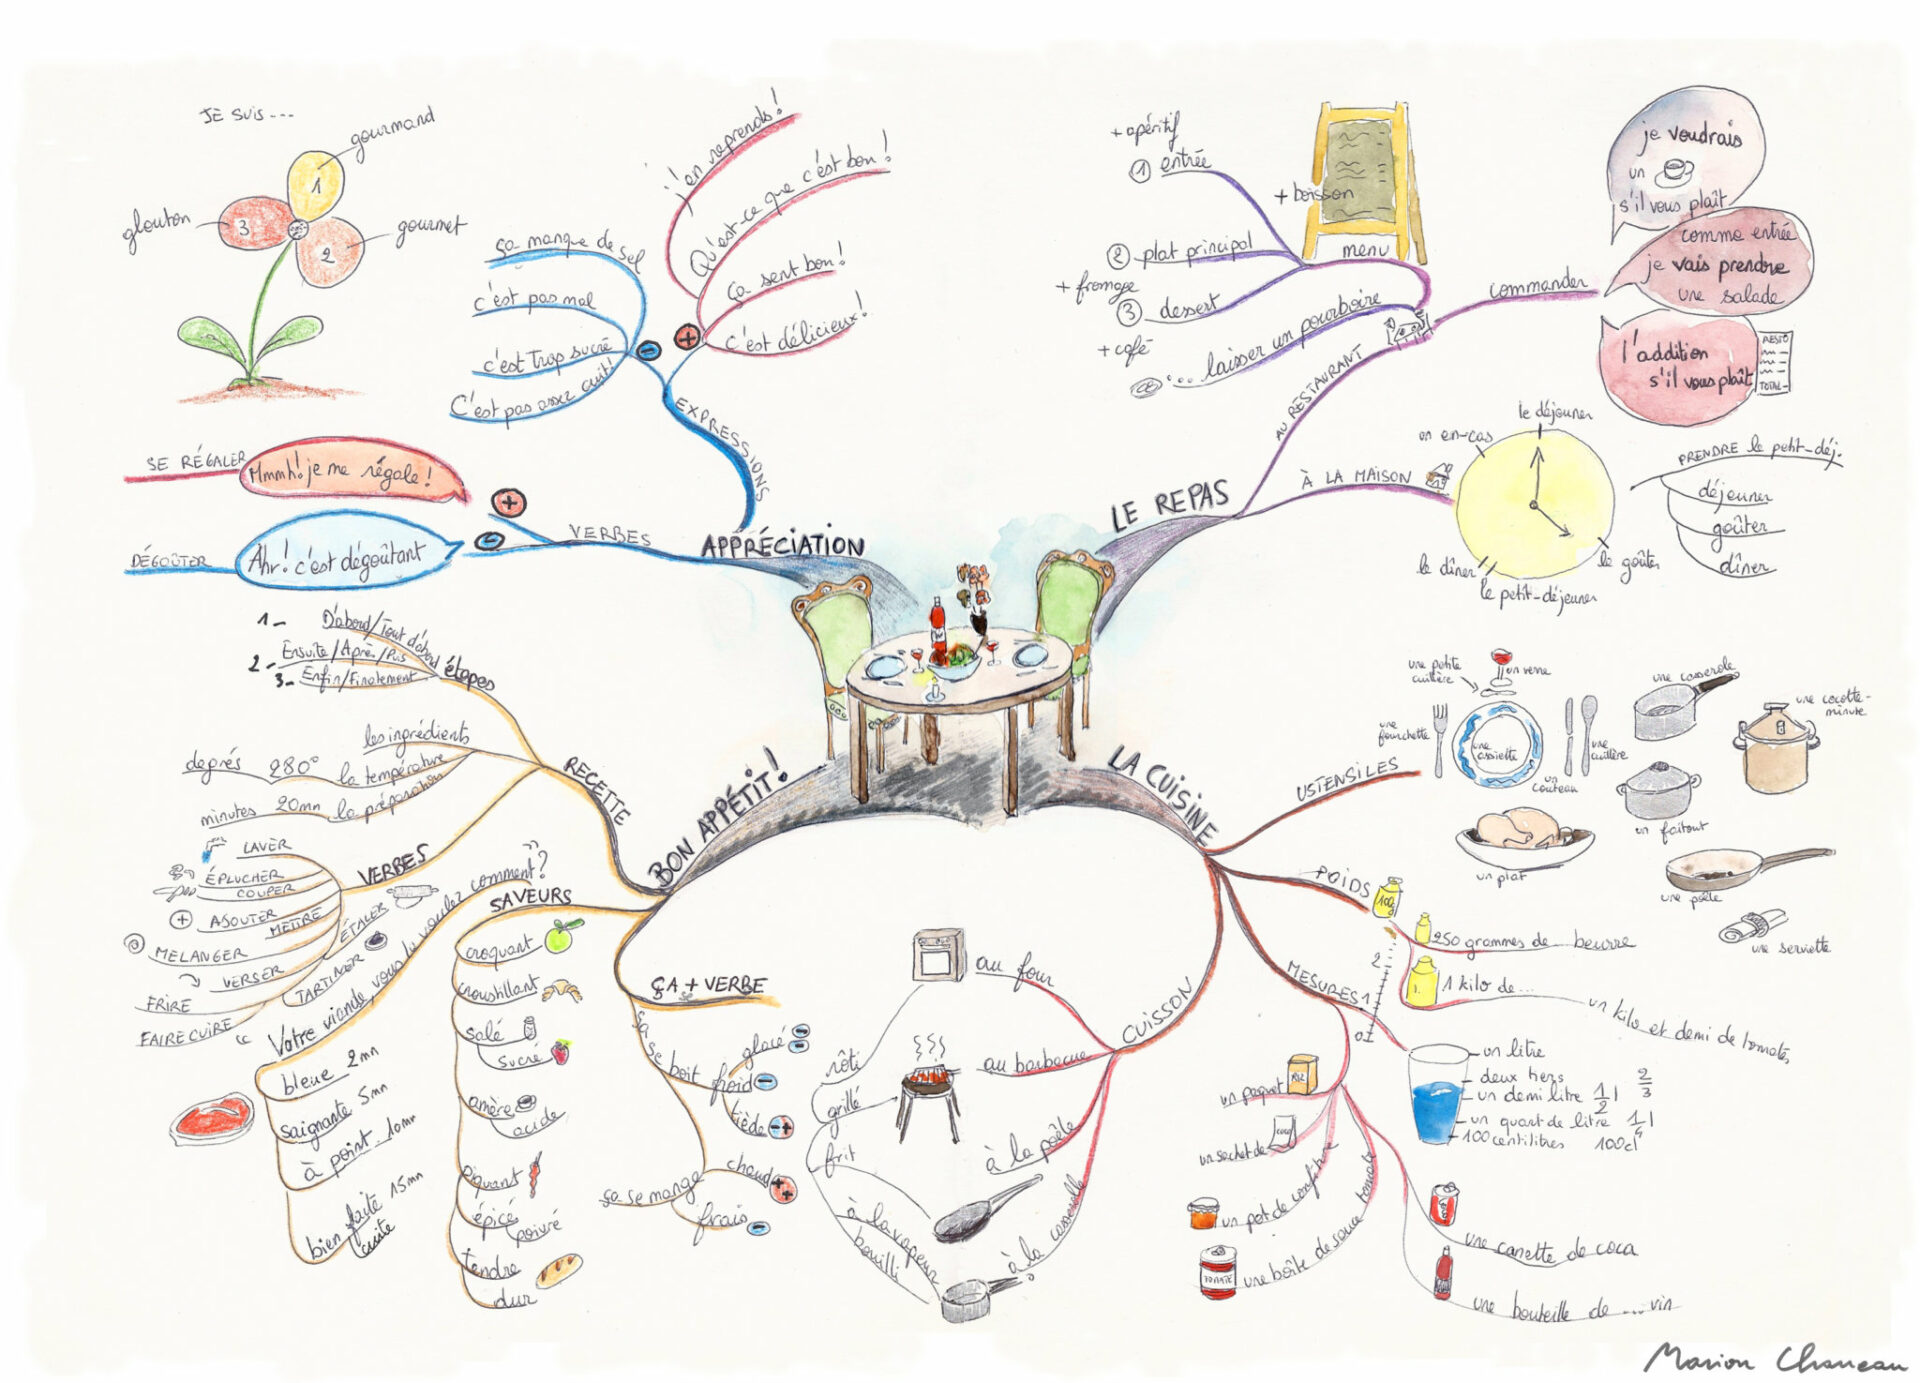 JE SUIS...
gourmand
1
glouton
3
2
gourmet
j'en reprends!
Qu'est-ce que c'est bon!
ça sent bon!
c'est délicieux!
+
ça manque de sel
c'est pas mal
c'est trop sucré
C'est pas assez cuit!
-
EXPRESSIONS
SE RÉGALER
Mmmh! je me régale!
+
DÉGOÛTER
Ahr! c'est dégoûtant
-
VERBES
APPRÉCIATION
+ apéritif
1 entrée
+ boisson
2 plat principal
+ fromage
3 dessert
+ café
... laisser un pourboire
menu
AU RESTAURANT
commander
je voudrais
un
s'il vous plaît
comme entrée
je vais prendre
une salade
l'addition
s'il vous plaît
RESTO
TOTAL
LE REPAS
À LA MAISON
le déjeuner
un en-cas
le goûter
le dîner
le petit-déjeuner
PRENDRE le petit-déj.
déjeuner
goûter
dîner
1- D'abord/Tout d'abord
2- Ensuite/Après/Puis
3- Enfin/Finalement
étapes
les ingrédients
degrés 280° la température
minutes 20mn la préparation
RECETTE
VERBES
LAVER
ÉPLUCHER
COUPER
+ AJOUTER
METTRE
MELANGER
VERSER
FRIRE
FAIRE CUIRE
ÉTALER
TARTINER
Votre viande, vous la voulez comment?
bleue 2mn
saignante 5mn
à point 10mn
bien faite 15mn
cuite
BON APPÉTIT!
SAVEURS
croquant
croustillant
salé
sucré
amère
acide
piquant
épicé
poivré
tendre
dur
ÇA + VERBE
se
ça se boit
glacé
froid
tiède
ça se mange
chaud
frais
LA CUISINE
CUISSON
au four
rôti
au barbecue
grillé
à la poêle
frit
à la vapeur
bouilli
à la casserole
USTENSILES
une petite
cuillère
un verre
une
fourchette
une
assiette
un
couteau
une
cuillère
une casserole
une cocotte-
minute
un faitout
un plat
une poêle
une serviette
POIDS
100g
250 grammes de... beurre
1 kilo de...
un kilo et demi de tomates
MESURES
2
1
0
un litre
deux tiers 2/3
un demi litre 1/2 l
un quart de litre 1/4 l
100 centilitres 100cl
un paquet
RIZ
un sachet de
COCO
un pot de confiture
une boîte de sauce tomate
TOMATE
une canette de coca
une bouteille de ... vin
Marion Charreau